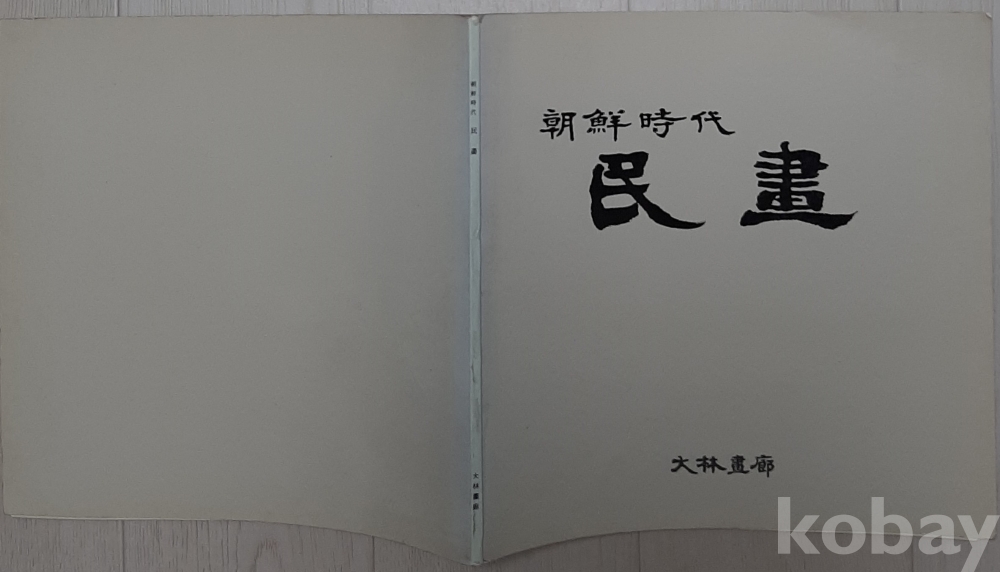 朝鮮時代
民畫
大林畫廊
朝鮮時代 民畫
大林畫廊
kobay